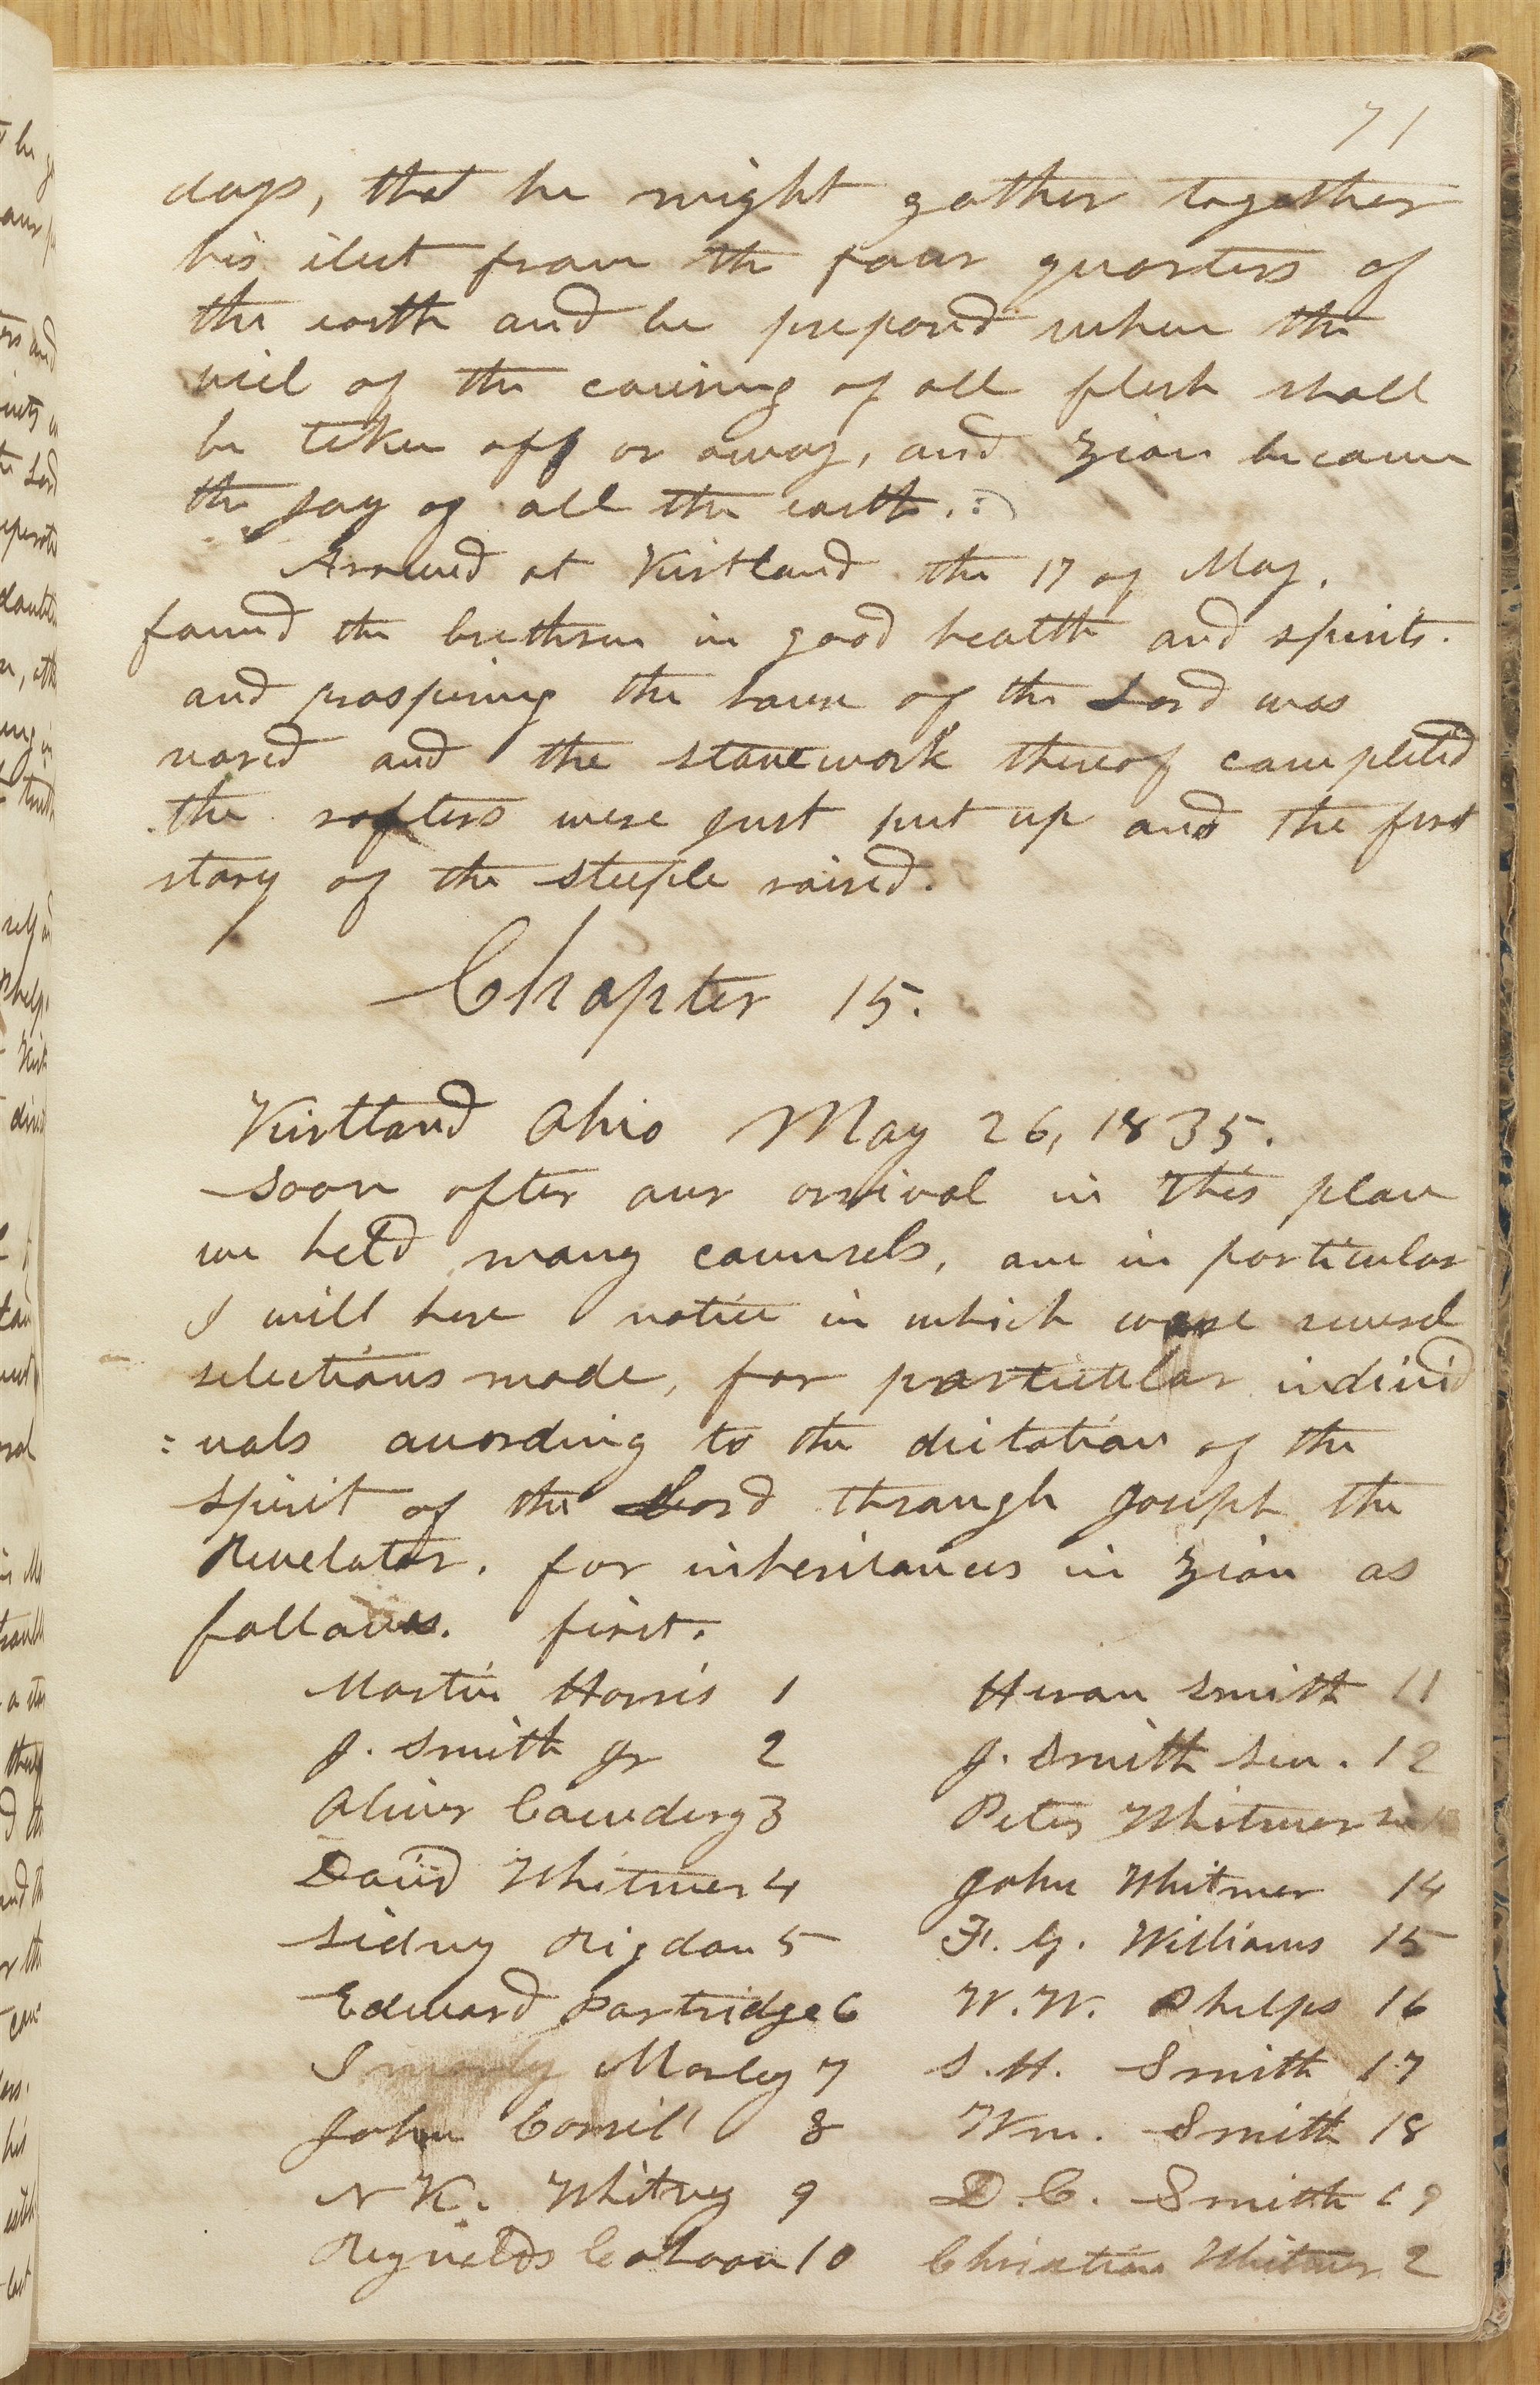 71
days, that he might gather together
his elect from the four quarters of
the earth and be prepared when the
viel of the covering of all flesh shall
be taken off or away, and Zion become
the joy of all the earth.
Arrived at Kirtland the 17 of May.
found the brethren in good health and spirits.
and prospering the house of the Lord was
reared and the stone work thereof completed
the rafters were just put up and the first
story of the steeple raised.
Chapter 15.
Kirtland Ohio May 26, 1835.
Soon after our arrival in this place
we held many counsels, one in particular
I will here notice in which were several
selections made, for particular individ
=uals according to the dictation of the
Spirit of the Lord through Joseph the
Revelator. for inheritances in Zion as
follows. first.
Martin Harris 1 Hiram Smith 11
J. Smith Jr 2 J. Smith Sen. 12
Oliver Cowdery 3 Peter Whitmer
David Whitmer 4 John Whitmer 14
Sidney Rigdon 5 F. G. Williams 15
Edward Partridge 6 W. W. Phelps 16
I Morley 7 S. H. Smith 17
John Corril 8 Wm. Smith 18
N K. Whitney 9 D. C. Smith 19
Reynolds Cahoon 10 Christian Whitmer 2